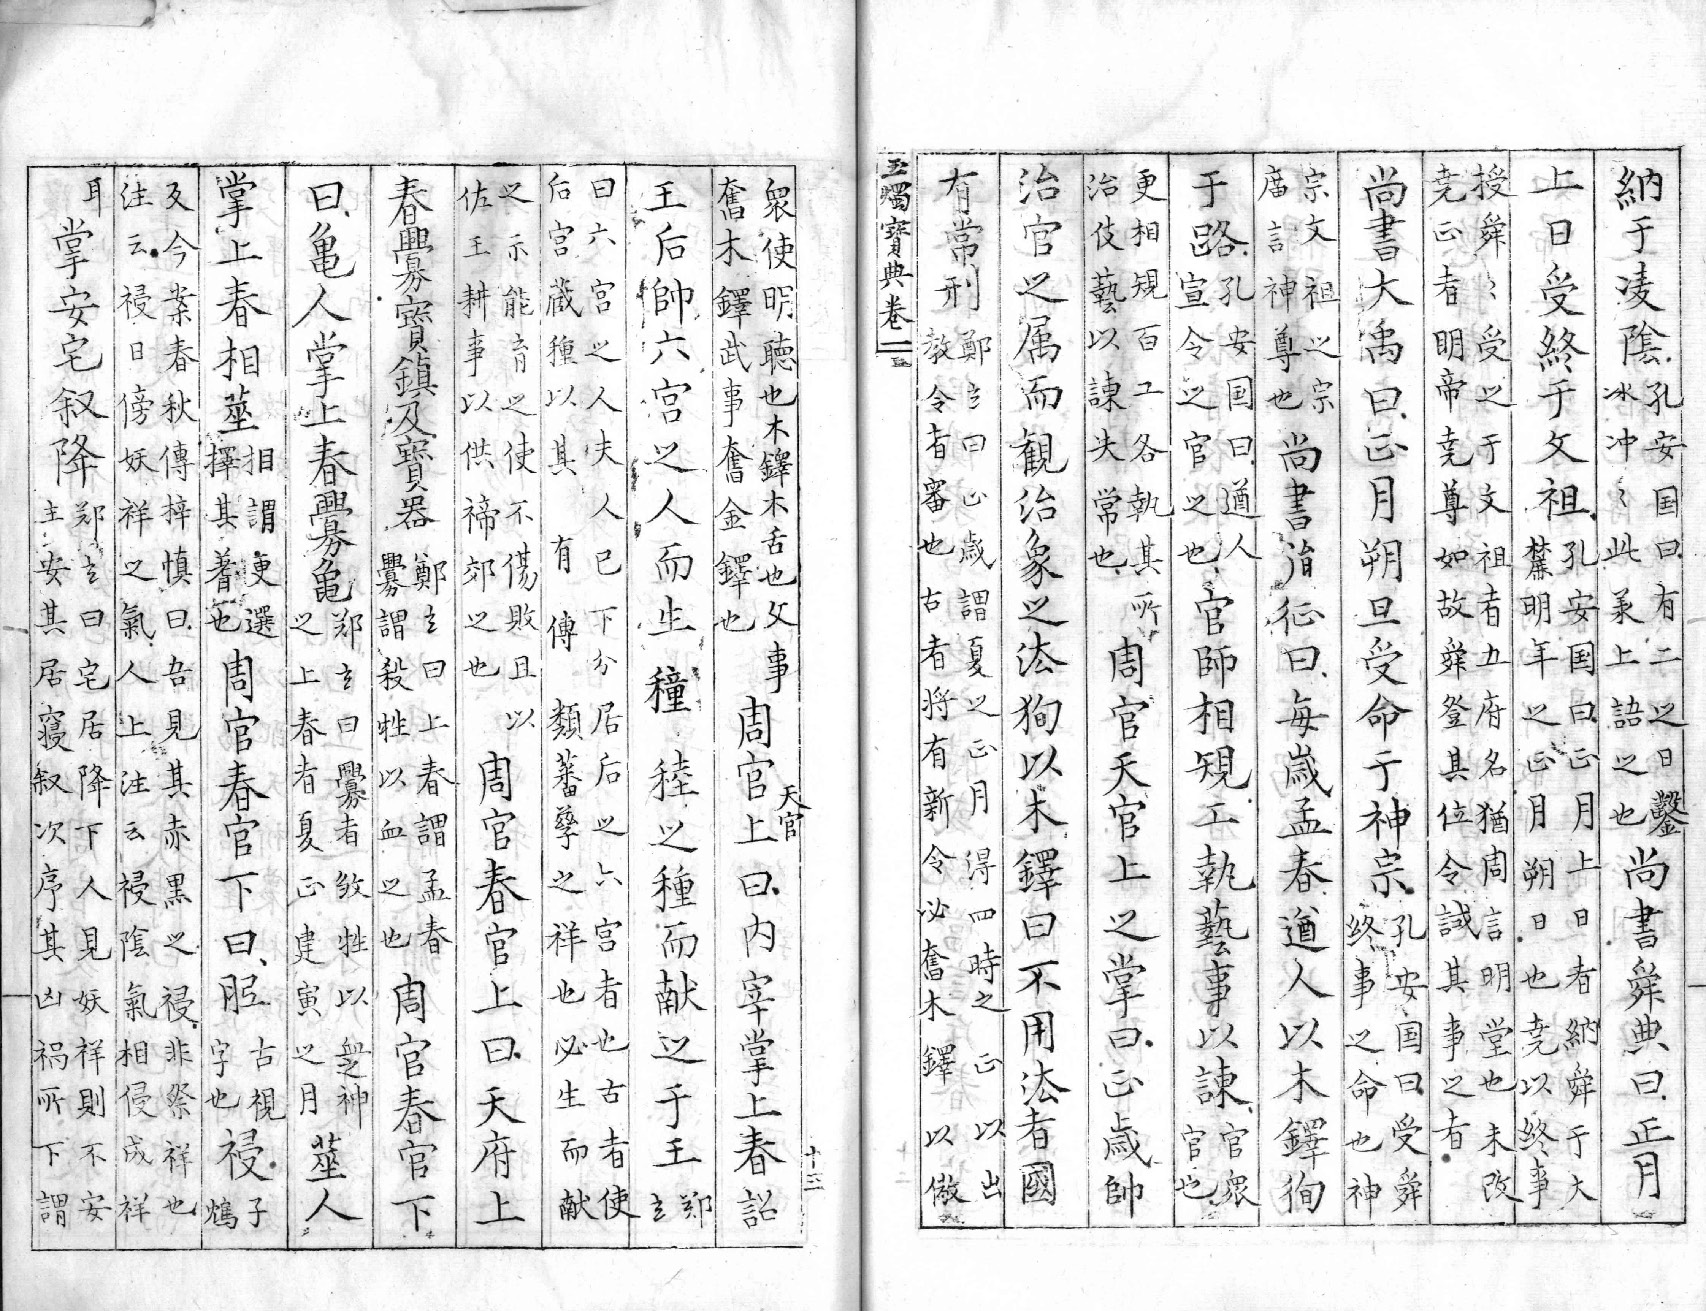 納于凌陰孔安国曰有二之日鑿
冰冲〻此羕上語之也尚書舜典曰正月
上日受終于文祖孔安国曰正月上日者納舜于大
麓明年之正月朔日也堯以終事
授舜〻受之于文祖者五府名猶周言明堂也未改
堯正者明帝堯尊如故舜登其位令誡其事之者
尚書大禹曰正月朔旦受命于神宗孔安国曰受舜
終事之命也神
宗文祖之宗
廣言神尊也尚書胤征曰每歳孟春遒人以木鐸徇
于路孔安国曰遒人
宣令之官之也官師相規工執藝事以諫官衆
官也
更相規百工各執其所
治伎藝以諫失常也周官天官上之掌曰正歳帥
治官之属而観治象之法狥以木鐸曰不用法者國
有常刑鄭玄曰正歳謂夏之正月得四時之正以出
教令者審也古者将有新令必奮木鐸以儆
玉燭寶典卷一
衆使明聴也木鐸木舌也文事
奮木鐸武事奮金鐸也周官天官上曰内宰掌上春詔
十三
王后帥六宮之人而生穜稑之種而献之于王鄭
玄
曰六宮之人夫人已下分居后之六宮者也古者使
后宮蔵種以其有傳類蕃孳之祥也必生而献
之示能育之使不傷敗且以
佐王耕事以供禘郊之也周官春官上曰天府上
春釁寳鎮及寳器鄭玄曰上春謂孟春
釁謂殺牲以血之也周官春官下
曰亀人掌上春釁亀郑玄曰釁者殺牲以血神
之上春者夏正建寅之月莁人
掌上春相莁相謂更選
擇其蓍也周官春官下曰眂古視
字也祲子
鴆
反今案春秋傳梓慎曰吾見其赤黒之祲非祭祥也
注云祲日傍妖祥之氣人上注云祲陰氣相侵成祥
耳掌安宅叙降郑玄曰宅居降下人見妖祥則不安
主安其居寝叙次序其凶禍所下謂